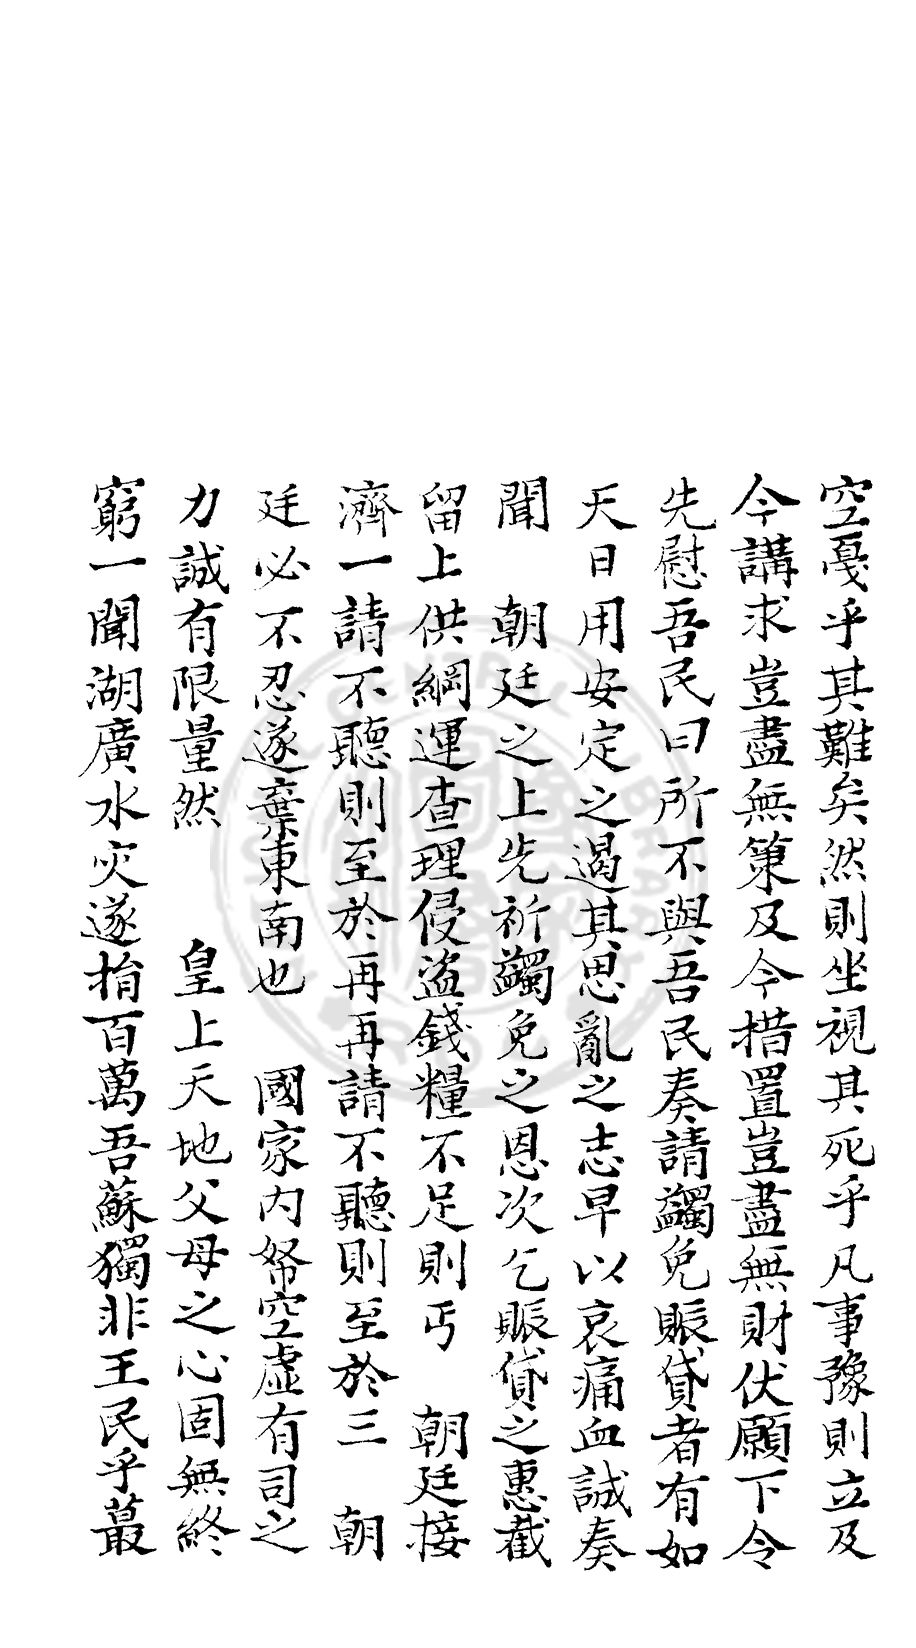 空戛乎其難矣然則坐視其死乎凡事豫則立及
今講求豈盡無策及今措置豈盡無財伏願下令
先慰吾民曰所不與吾民奏請蠲免賑貸者有如
天日用安定之遏其思亂之志早以哀痛血誠奏
聞　朝廷之上先祈蠲免之恩次乞賑貸之惠截
留上供綱運查理侵盜錢糧不足則丐　朝廷接
濟一請不聽則至於再再請不聽則至於三　朝
廷必不忍遂棄東南也　國家內帑空虛有司之
力誠有限量然　皇上天地父母之心固無終
窮一聞湖廣水灾遂捐百萬吾蘇獨非王民乎蕞